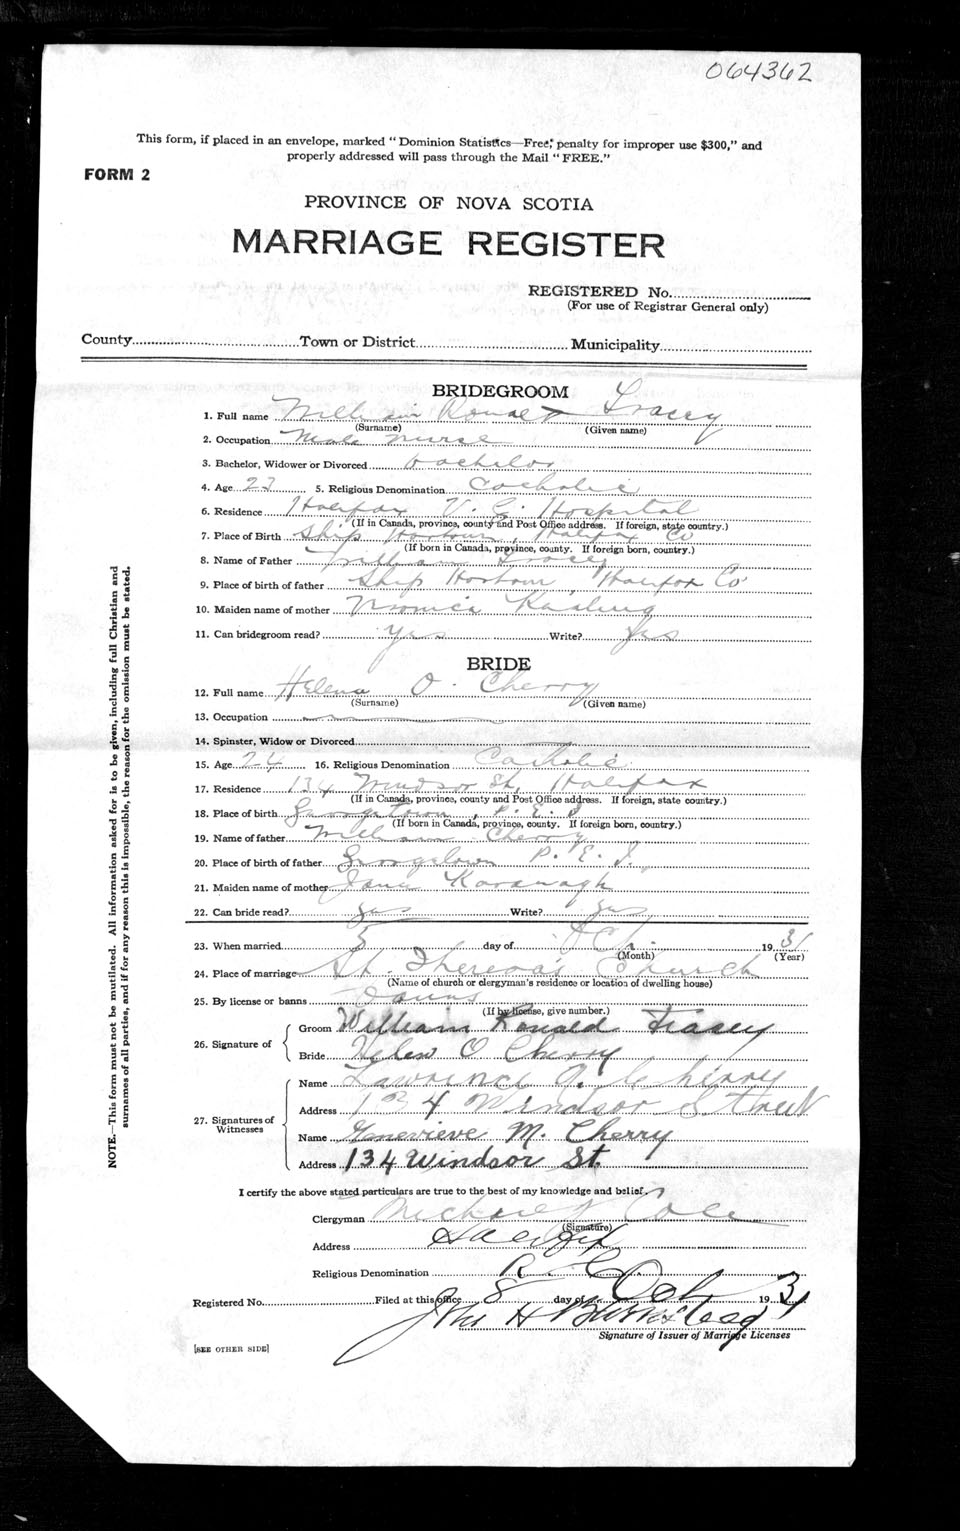 064362
This form, if placed in an envelope, marked "Dominion Statistics—Free; penalty for improper use $300," and
properly addressed will pass through the Mail "FREE."
FORM 2
PROVINCE OF NOVA SCOTIA
MARRIAGE REGISTER
REGISTERED No.
(For use of Registrar General only)
County Town or District Municipality
BRIDEGROOM
1. Full name William Ronald Tracey
(Surname) (Given name)
2. Occupation Male nurse
3. Bachelor, Widower or Divorced bachelor
4. Age 23 5. Religious Denomination Catholic
6. Residence Halifax V. G. Hospital
(If in Canada, province, county and Post Office address. If foreign, state country.)
7. Place of Birth Ship Harbour, Halifax Co
(If born in Canada, province, county. If foreign born, country.)
8. Name of Father William Tracey
9. Place of birth of father Ship Harbour, Halifax Co
10. Maiden name of mother
11. Can bridegroom read? yes Write? yes
BRIDE
12. Full name Helena O. Cherry
(Surname) (Given name)
13. Occupation
14. Spinster, Widow or Divorced
15. Age 24 16. Religious Denomination Catholic
17. Residence 134 Windsor St, Halifax
(If in Canada, province, county and Post Office address. If foreign, state country.)
18. Place of birth Georgetown, P. E. I
(If born in Canada, province, county. If foreign born, country.)
19. Name of father William Cherry
20. Place of birth of father Georgetown P. E. I.
21. Maiden name of mother Jane Kavanagh
22. Can bride read? yes Write? yes
23. When married 5 day of Oct. 1931
(Month) (Year)
24. Place of marriage St. Theresa's Church
(Name of church or clergyman's residence or location of dwelling house)
25. By license or banns banns
(If by license, give number.)
26. Signature of
Groom William Ronald Tracey
Bride Helen O Cherry
27. Signatures of Witnesses
Name Lawrence J. Cherry
Address 134 Windsor Street
Name Genevieve M. Cherry
Address 134 Windsor St.
I certify the above stated particulars are true to the best of my knowledge and belief.
Clergyman Michael Cole
(Signature)
Address Halifax
Religious Denomination R. C.
Registered No. Filed at this office 8 day of Oct 1931
Jno H
Signature of Issuer of Marriage Licenses
[SEE OTHER SIDE]
NOTE.—This form must not be mutilated. All information asked for is to be given, including full Christian and
surnames of all parties, and if for any reason this is impossible, the reason for the omission must be stated.